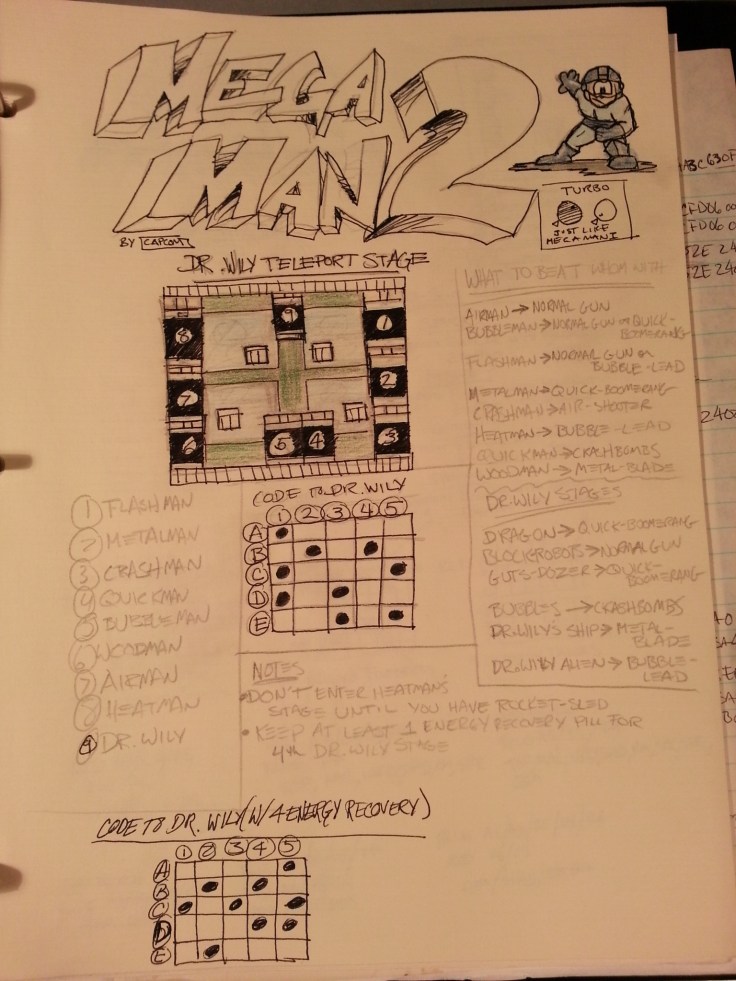 MEGA
MAN 2
BY CAPCOM
TURBO
JUST LIKE
MEGAMAN 1
DR. WILY TELEPORT STAGE
9
8
1
7
2
6
5
4
3
WHAT TO BEAT WHOM WITH
AIRMAN → NORMAL GUN
BUBBLEMAN → NORMAL GUN OR QUICK-
BOOMERANG
FLASHMAN → NORMAL GUN OR
BUBBLE-LEAD
METALMAN → QUICK-BOOMERANG
CRASHMAN → AIR-SHOOTER
HEATMAN → BUBBLE-LEAD
QUICKMAN → CRASHBOMBS
WOODMAN → METAL-BLADE
DR. WILY STAGES
DRAGON → QUICK-BOOMERANG
BLOCKROBOTS → NORMAL GUN
GUTS-DOZER → QUICK-
BOOMERANG
BUBBLES → CRASHBOMBS
DR. WILY'S SHIP → METAL-
BLADE
DR. WILY ALIEN → BUBBLE-
LEAD
1 FLASHMAN
2 METALMAN
3 CRASHMAN
4 QUICKMAN
5 BUBBLEMAN
6 WOODMAN
7 AIRMAN
8 HEATMAN
9 DR. WILY
CODE TO DR. WILY
1 2 3 4 5
A
B
C
D
E
NOTES
• DON'T ENTER HEATMAN'S
STAGE UNTIL YOU HAVE ROCKET-SLED
• KEEP AT LEAST 1 ENERGY RECOVERY PILL FOR
4th DR. WILY STAGE
CODE TO DR. WILY (W/ 4 ENERGY RECOVERY)
1 2 3 4 5
A
B
C
D
E